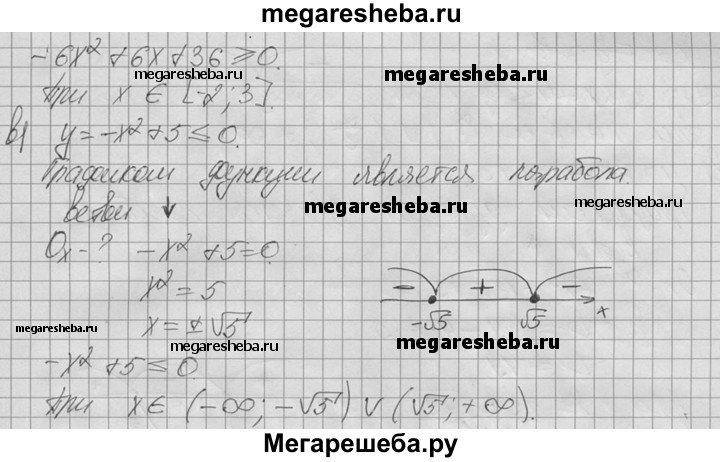 megaresheba.ru
-6x² + 6x + 36 ≥ 0.
megaresheba.ru
megaresheba.ru
При x ∈ [-2; 3].
в) y = -x² + 5 ≤ 0.
Графиком функции является парабола.
megaresheba.ru
ветви ↓
megaresheba.ru
Ox - ? -x² + 5 = 0.
x² = 5
- + -
-√5 √5 x
x = ± √5
megaresheba.ru
megaresheba.ru
megaresheba.ru
-x² + 5 ≤ 0.
При x ∈ (-∞; -√5) ∨ (√5; +∞).
Мегарешеба.ру